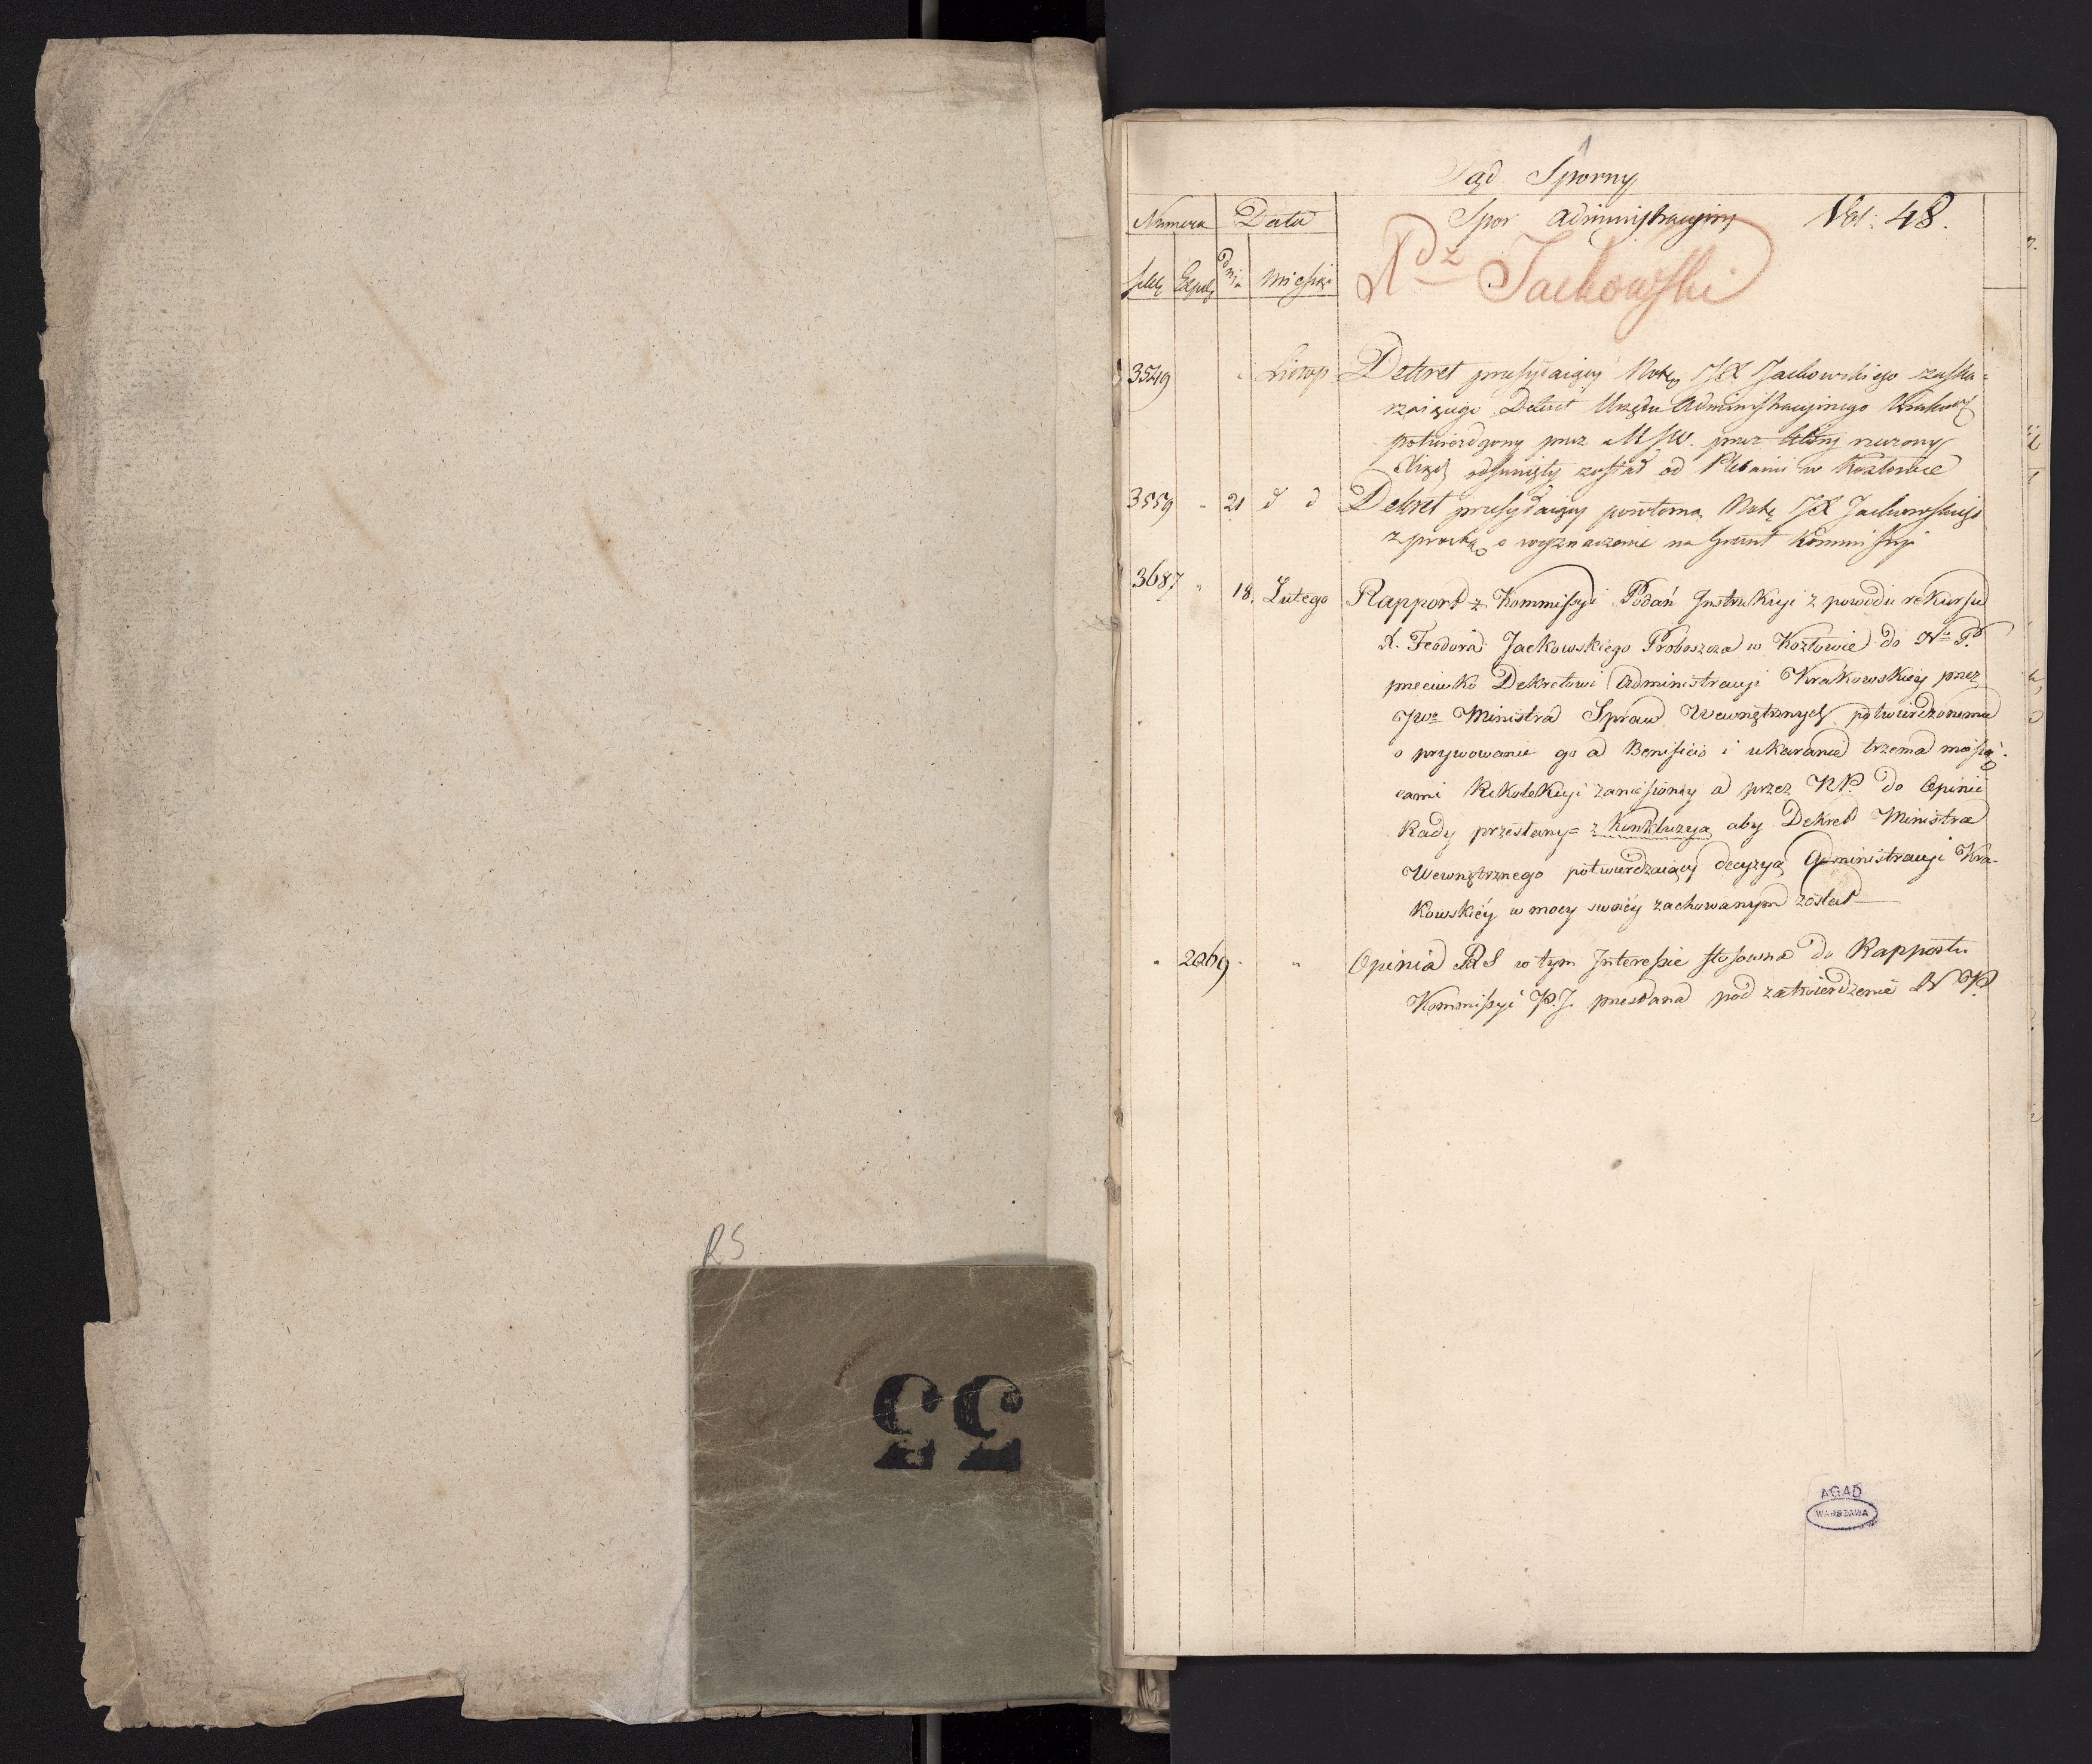 RS
55
1
Sąd Sporny
Numera Data Spor Administracyiny Vol: 48.
dnia Miesiąc
Xdz Jackowski
3549 Listop Dekret przesyłaiący Notę JX Jackowskiego zaska-
rzaiącego Dekret Urzędu Administracyinego
potwierdzony przez MSW. przez który rzeczony
Xiądz odsunięty został od Plebanii w Kozłowie
3559 " 21 d d Dekret przesyłaiący powtorną Notę JX Jackowskiego
z proźbą o wyznaczenie na Grunt Kommissyi
3687 " 18. Lutego Rapport z Kommissyi Podań Instrukcyi z powodu rekursu
X. Teodora Jackowskiego Proboszcza w Kozłowie do Nº P.
przeciwko Dekretowi Administracyi Krakowskiey przez
JWº Ministra Spraw Wewnętrznych potwierdzonemu
o prywowanie go a Beneficio i ukaranie trzema miesią-
cami Rekolekcyi zaniesiony a przez NP. do Opinii
Rady przesłany = z konkluzyą aby Dekret Ministra
Wewnętrznego potwierdzaiący decyzyą Administracyi Kra-
kowskiéy w mocy swoiéy zachowanym został
" 2269 " " Opinia RS w tym Interessie stosowna do Rapportu
Kommissyi P.J. przesłana pod zatwierdzenie N P.
AGAD
WARSZAWA